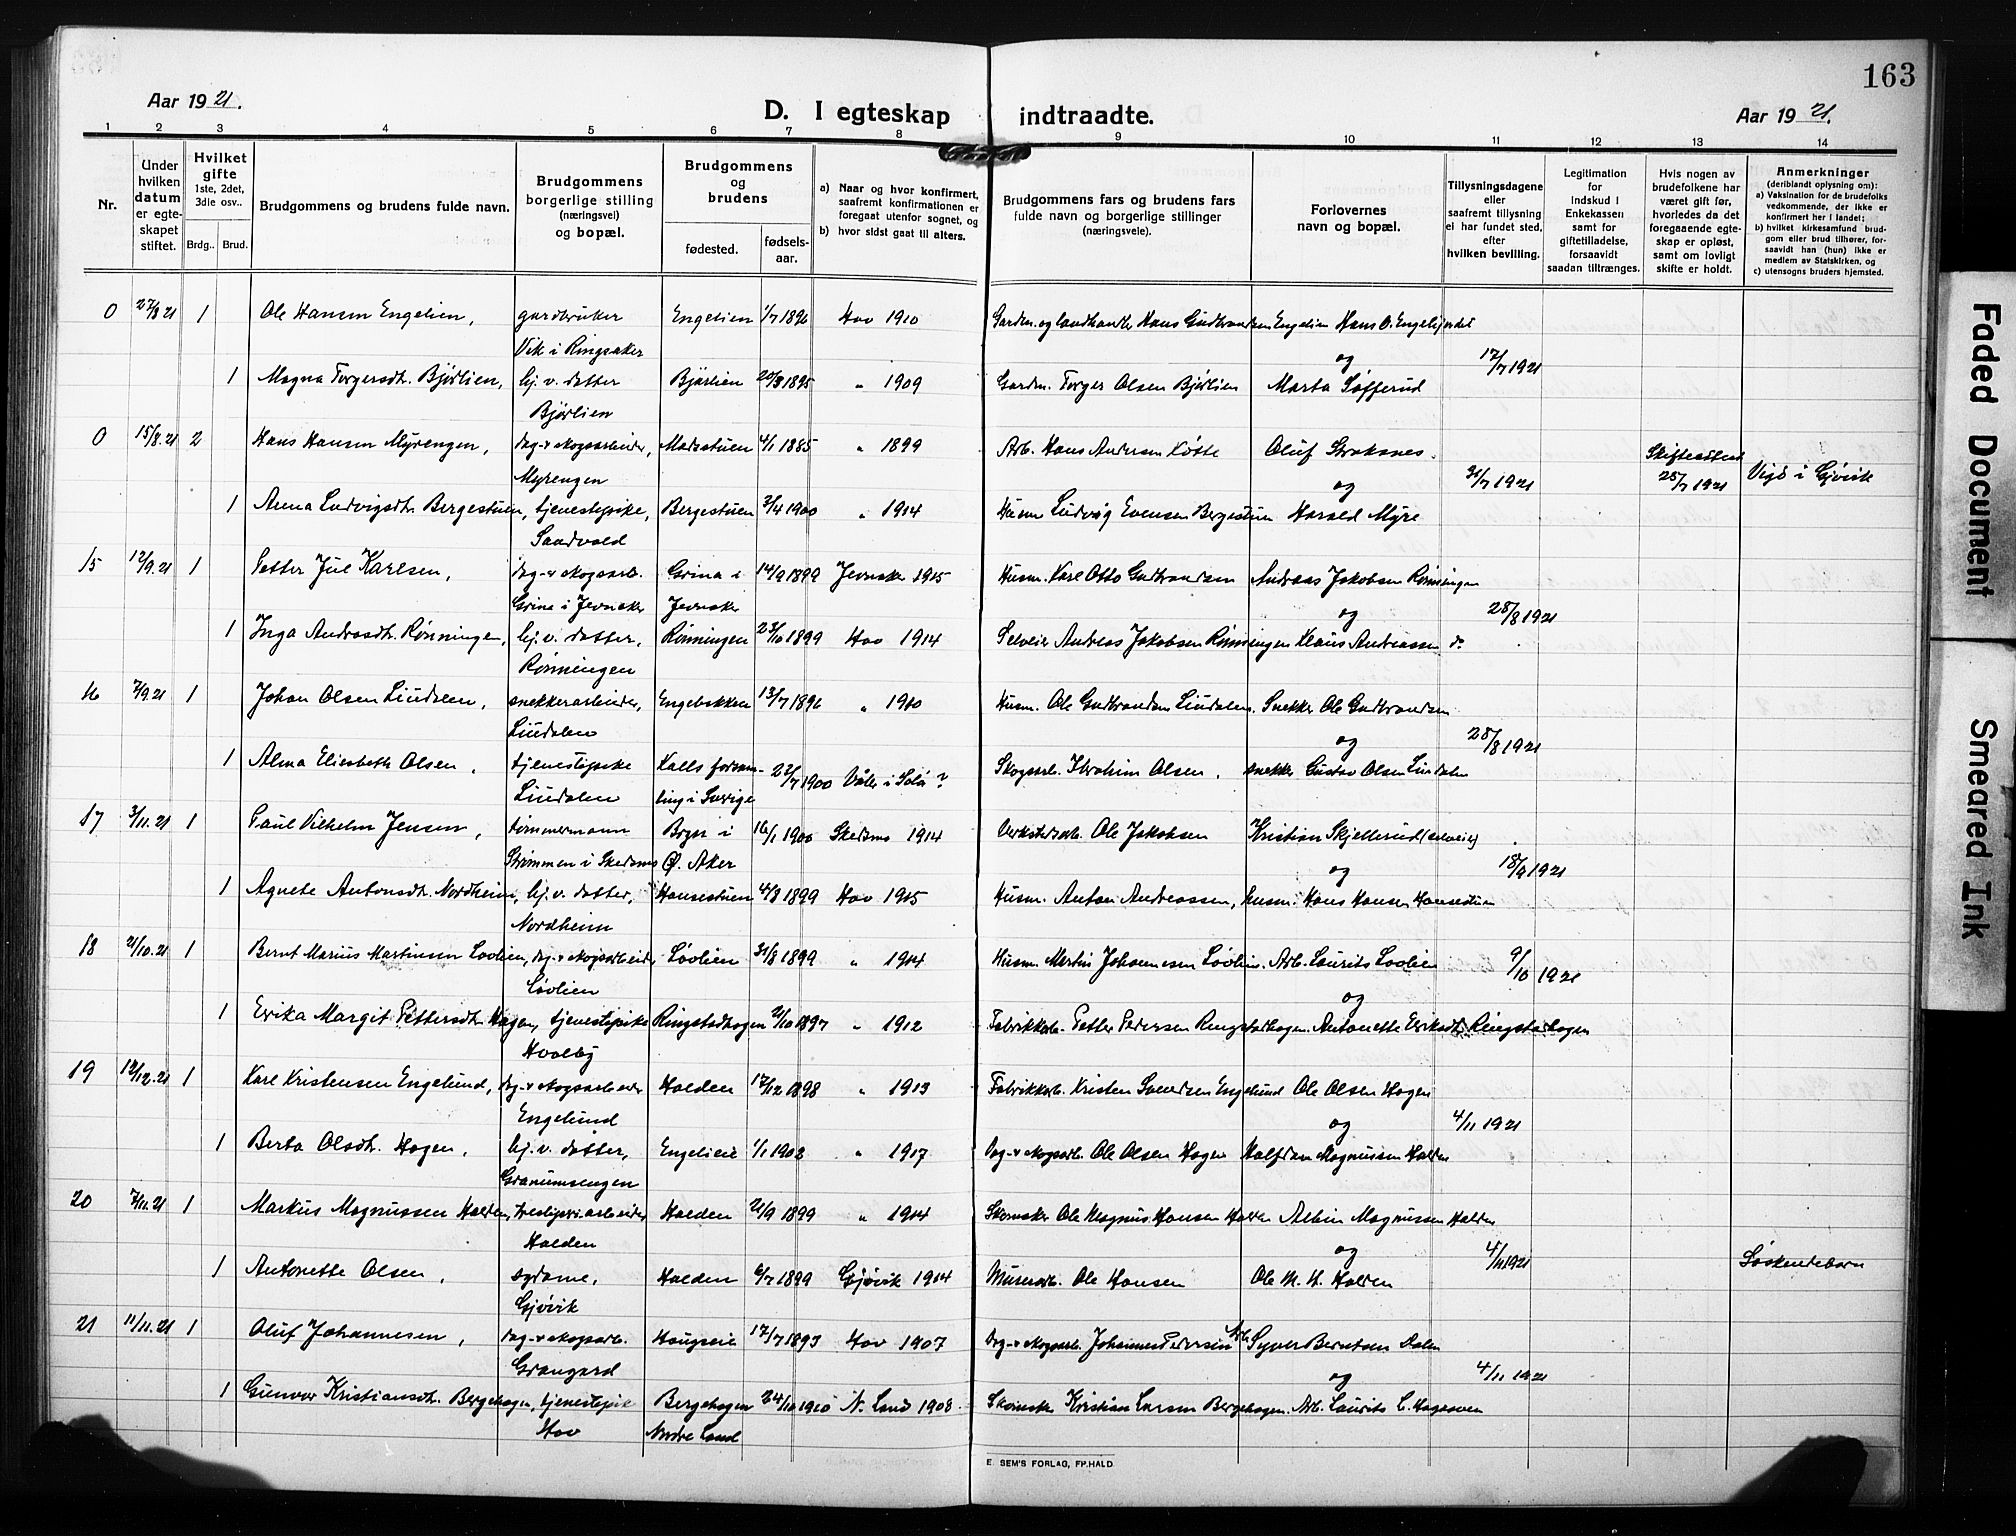 163
Aar 1921.
D. I egteskap indtraadte.
Aar 1921.
1 2 3 4 5 6 7 8 9 10 11 12 13 14
Nr.
Under hvilken datum er egteskapet stiftet.
Hvilket gifte
1ste, 2det, 3die osv..
Brdg.. Brud.
Brudgommens og brudens fulde navn.
Brudgommens borgerlige stilling (næringsvei) og bopæl.
Brudgommens og brudens
fødested. fødselsaar.
a) Naar og hvor konfirmert, saafremt konfirmationen er foregaat utenfor sognet, og
b) hvor sidst gaat til alters.
Brudgommens fars og brudens fars fulde navn og borgerlige stillinger (næringsveie).
Forlovernes navn og bopæl.
Tillysningsdagene eller saafremt tillysning ei har fundet sted, efter hvilken bevilling.
Legitimation for indskud i Enkekassen samt for giftetilladelse, forsaavidt saadan tiltrænges.
Hvis nogen av brudefolkene har været gift før, hvorledes da det foregaaende egteskap er opløst, samt om lovligt skifte er holdt.
Anmerkninger
(deriblandt oplysning om):
a) Vaksination for de brudefolks vedkommende, der ikke er konfirmert her i landet;
b) hvilket kirkesamfund brudgom eller brud tilhører, forsaavidt han (hun) ikke er medlem av Statskirken, og
c) utensogns bruders hjemsted.
0 27/8 21 1 Ole Hansen Engelien, gardbruker Engelien 1/7 1896 Hov 1910 Gardm. og landhandler Hans Gudbrandsen Engelien Hans O. Engelien
Vik i Ringsaker og 17/7 1921
1 Magna Torgersdt. Bjørlien, hj. v. datter Bjørlien 20/8 1895 " 1909 Gardm. Torger Olsen Bjørlien Marta Søfferud
Bjørlien
0 15/8.21 2 Hans Hansen Myrengen, dag- & skogsarbeider, Madsstuen 4/1 1885 " 1899 Arb. Hans Andersen Oluf Stroksnes. Skifteattest
Myrengen og 31/7 1921 25/7 1921 Vigd i Gjøvik
1 Anna Ludvigsdt. Bergestuen, tjenestepike, Bergestuen 3/4 1900 " 1914 Husm Ludvig Evensen Bergestuen Harald Myre
Sandvold
15 12/9.21 1 Petter Jul Karlsen, dag- & skogsarb. Grina i 14/9 1899 Jevnaker 1915 Husm. Karl Otto Gudbrandsen Andreas Jakobsen Rønningen
Grina i Jevnaker Jevnaker og 28/8 1921
1 Inga Andreasdt. Rønningen, hj. v. datter, Rønningen 23/10 1899 Hov 1914 Selveier Andreas Jakobsen Rønningen Klaus Andreassen do.
Rønningen
16 7/9.21 1 Johan Olsen Lindalen, snekkerarbeider, Engebakken 13/7 1896 " 1910 Husm. Ole Gudbrandsen Lindalen, Snekker Ole Gudbrandsen
Lindalen og 28/8 1921
1 Alma Elisabeth Olsen, tjenestepike Kalls forsam- 22/7 1900 Våler i Solø? Skogsarb. Ibrahim Olsen, snekker Gustav Olsen Lindalen
Lindalen ling i Sverige
17 3/11.21 1 Paul Vilhelm Jensen, tømmermann Bryn i 16/1 1900 Skedsmo 1914 Verkstedsarb. Ole Jakobsen Kristian Skjellerud (selveier)
Strømmen i Skedsmo Ø. Aker og 18/9 1921
1 Agnete Antonsdt. Nordheim, hj. v. datter, Hansestuen 4/8 1899 Hov 1915 Husm. Anton Andreassen, husm. Hans Hansen Hansestuen
Nordheim
18 21/10.21 1 Bernt Marius Martinsen Løvlien, dag- & skogsarbeider Løvlien 31/8 1899 " 1914 Husm. Martin Johannesen Løvlien. Arb. Laurits Løvlien 9/10 1921
Løvlien og
1 Erika Margit Pettersdt. Hagen, tjenestepike Ringstadhagen 21/10 1897 " 1912 Fabrikkarb. Petter Pedersen Ringstadhagen. Antonette Eriksdt. Ringstadhagen
Hvalby
19 12/12.21 1 Karl Kristensen Engelund, dag- & skogsarbeider Halden 17/12 1898 " 1913 Fabrikkarb. Kristen Svendsen Engelund Ole Olsen Hagen
Engelund og 4/11 1921
1 Berta Olsdt. Hagen, hj. v. datter, Engelieie 1/1 1902 " 1917 Dag- & skogsarb. Ole Olsen Hagen Halfdan Magnussen Halden
Granumsengen
20 7/11.21 1 Markus Magnussen Halden, tresliperiarbeider Halden 21/9 1899 " 1914 Skomaker Ole Magnus Hansen Halden Albin Magnussen Halden
Halden og 4/11 1921
1 Antonette Olsen, sydame, Halden 6/7 1899 Gjøvik 1914 Murerarb. Ole Hansen Ole M. H. Halden Søskendebarn
Gjøvik
21 11/11.21 1 Oluf Johannesen, dag- & skogsarb. Haugseie 17/7 1893 Hov 1907 Dag- & skogsarb. Johannes Pedersen Arb. Syver Berntsen Dalen
Grangard og 4/11 1921
1 Gunvor Kristiansdt. Bergehagen, tjenestepike Bergehagen 24/10 1910 N. Land 1908. Kristian Larsen Bergehagen. Arb. Laurits L. Hagesveen
Hov Nordre Land
E. SEM'S FORLAG, FR.HALD.
Faded Document
Smeared Ink